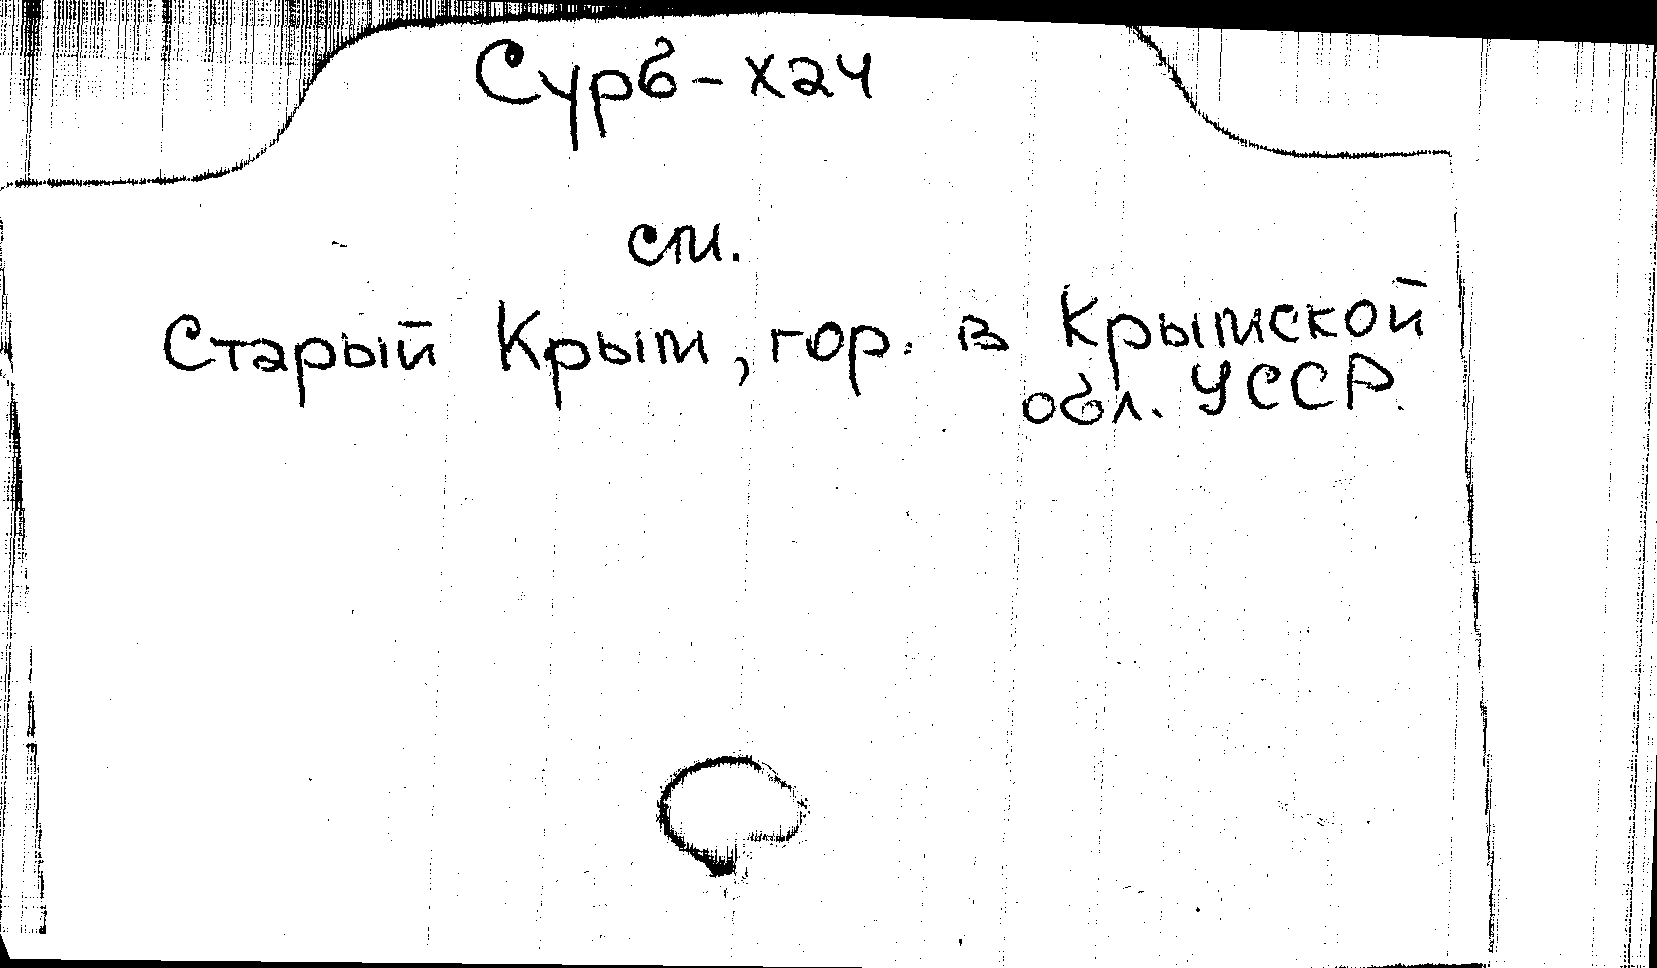 Сурб-хач
см.
Старый Крым, гор. в Крымской
обл. УССР.